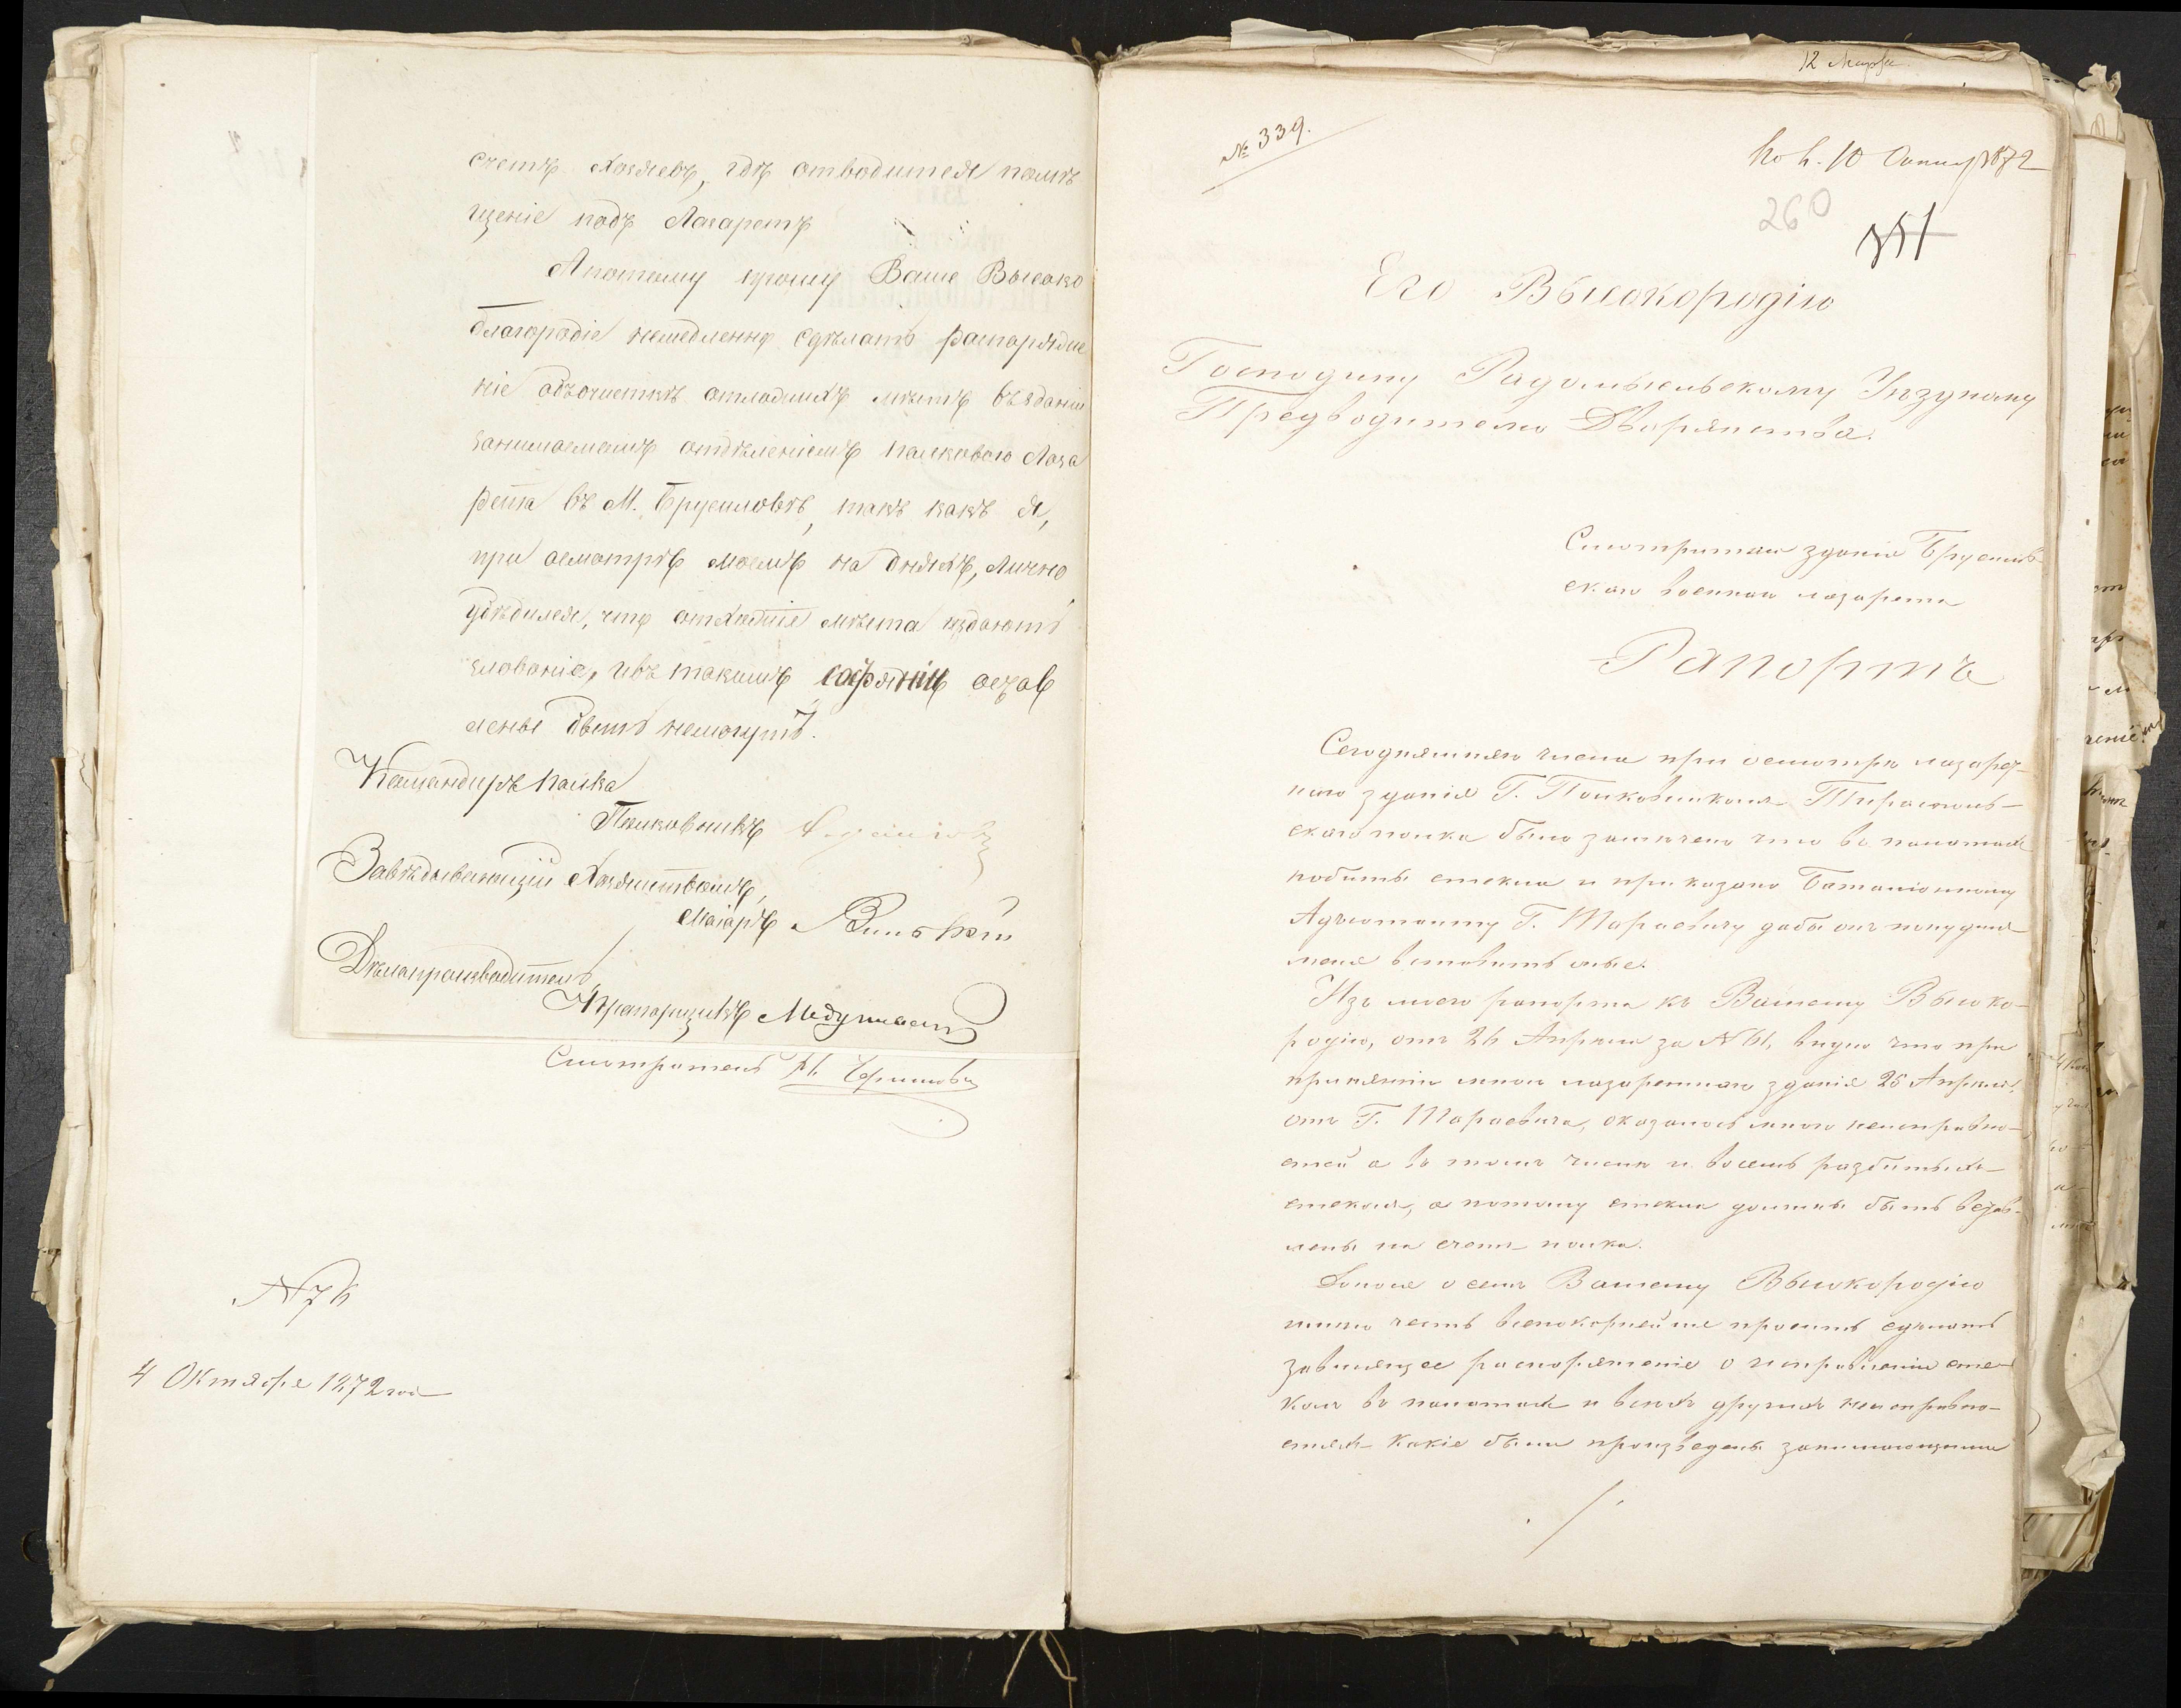 счетъ хозяевъ, гдѣ отводится помѣ
щеніе подъ Лазаретъ
А потому прошу Ваше Высоко
благородіе немедленно сдѣлать распоряже
ніе объ очисткѣ отхожихъ мѣстъ въ зданіи
занимаемомъ отдѣленіемъ полковаго Лаза
рета въ М. Брусиловѣ, такъ какъ я,
при осмотрѣ моемъ на дняхъ, лично
убѣдился, что отхожія мѣста издаютъ
зловоніе, и въ такомъ состояніи остав
лены быть не могутъ.
Командиръ полка
Полковникъ
Завѣдывающій Хозяйствомъ,
Маіоръ
Дѣлопроизводитель,
Прапорщикъ
Смотритель
№ 76
4 Октября 1872 год
12 Марта
№ 339.
10 1872
260
351
Его Высокородію
Господину Радомысльскому Уѣздному
Предводителю Дворянства.
Смотрителя зданія Брусилов
скаго военнаго лазарета
Рапортъ
Сегодняшняго числа при осмотрѣ лазарет-
наго зданія Г. Полковникомъ Тираспольс-
скаго полка было замѣчено что въ палатахъ
побиты стекла и приказано Баталіонному
Адъютанту Г. Тарасевичу дабы онъ понудилъ
меня вставить оные.
Изъ моего рапорта къ Вашему Высоко-
родію, отъ 26 Апреля за № 61, видно что при
принятіи мною лазаретнаго зданія 25 Апреля
отъ Г. Тарасевича, оказалось много неисправно-
стей а въ томъ числѣ и восемь разбитыхъ
стеколъ, а потому стекла должны быть встав-
лены на счетъ полка.
Донося о семъ Вашему Высокородію
имѣю честь всепокорнейше просить сдѣлать
зависящее распоряженіе о исправленіи сте-
колъ въ палатахъ и всѣхъ другихъ неисправно-
стяхъ какіе были произведены занимающими